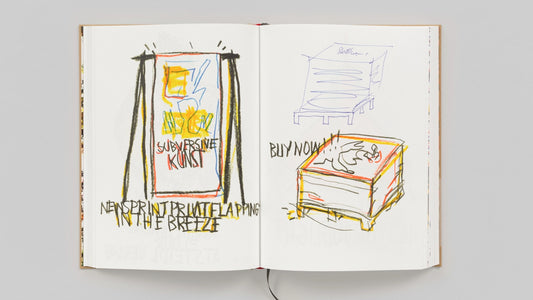 SUBVERSIVE
KUNST
NEWSPRINT PRIVATE FLAPPING
IN THE BREEZE
BUY NOW!!!